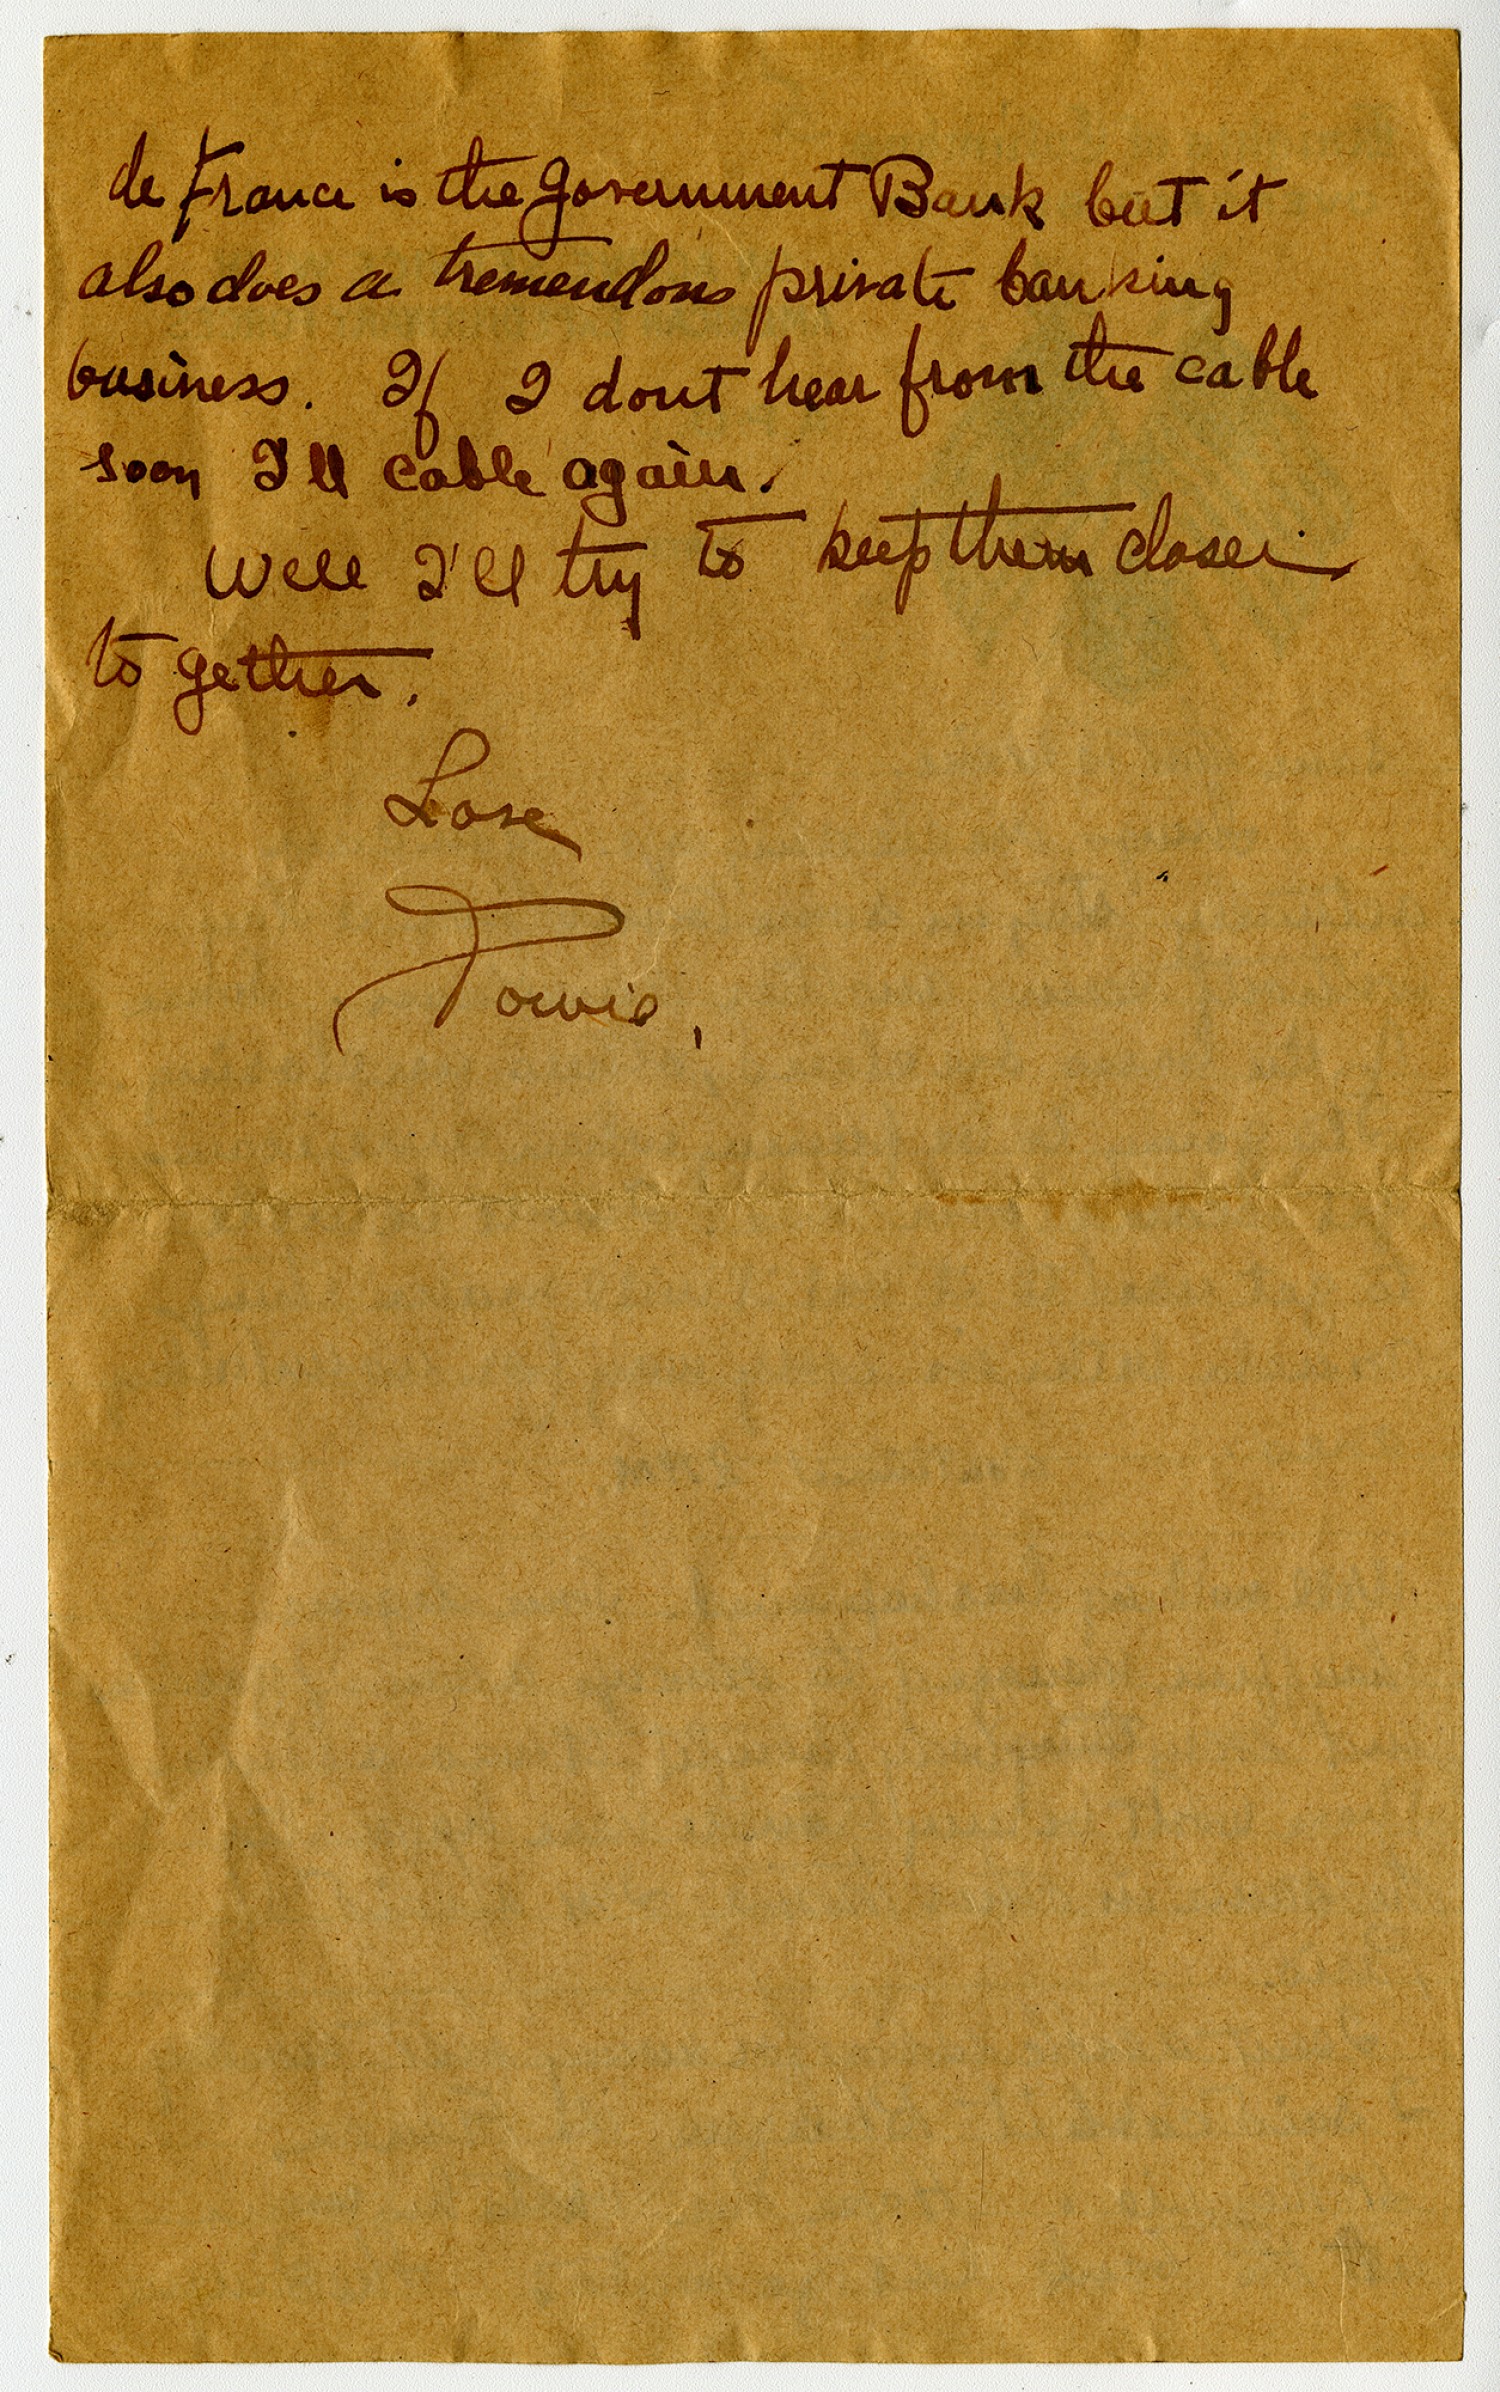 de France is the Government Bank but it
also does a tremendous private banking
business. If I dont hear from the cable
soon I'll cable again.
Well I'll try to keep them closer
to gether.
Love